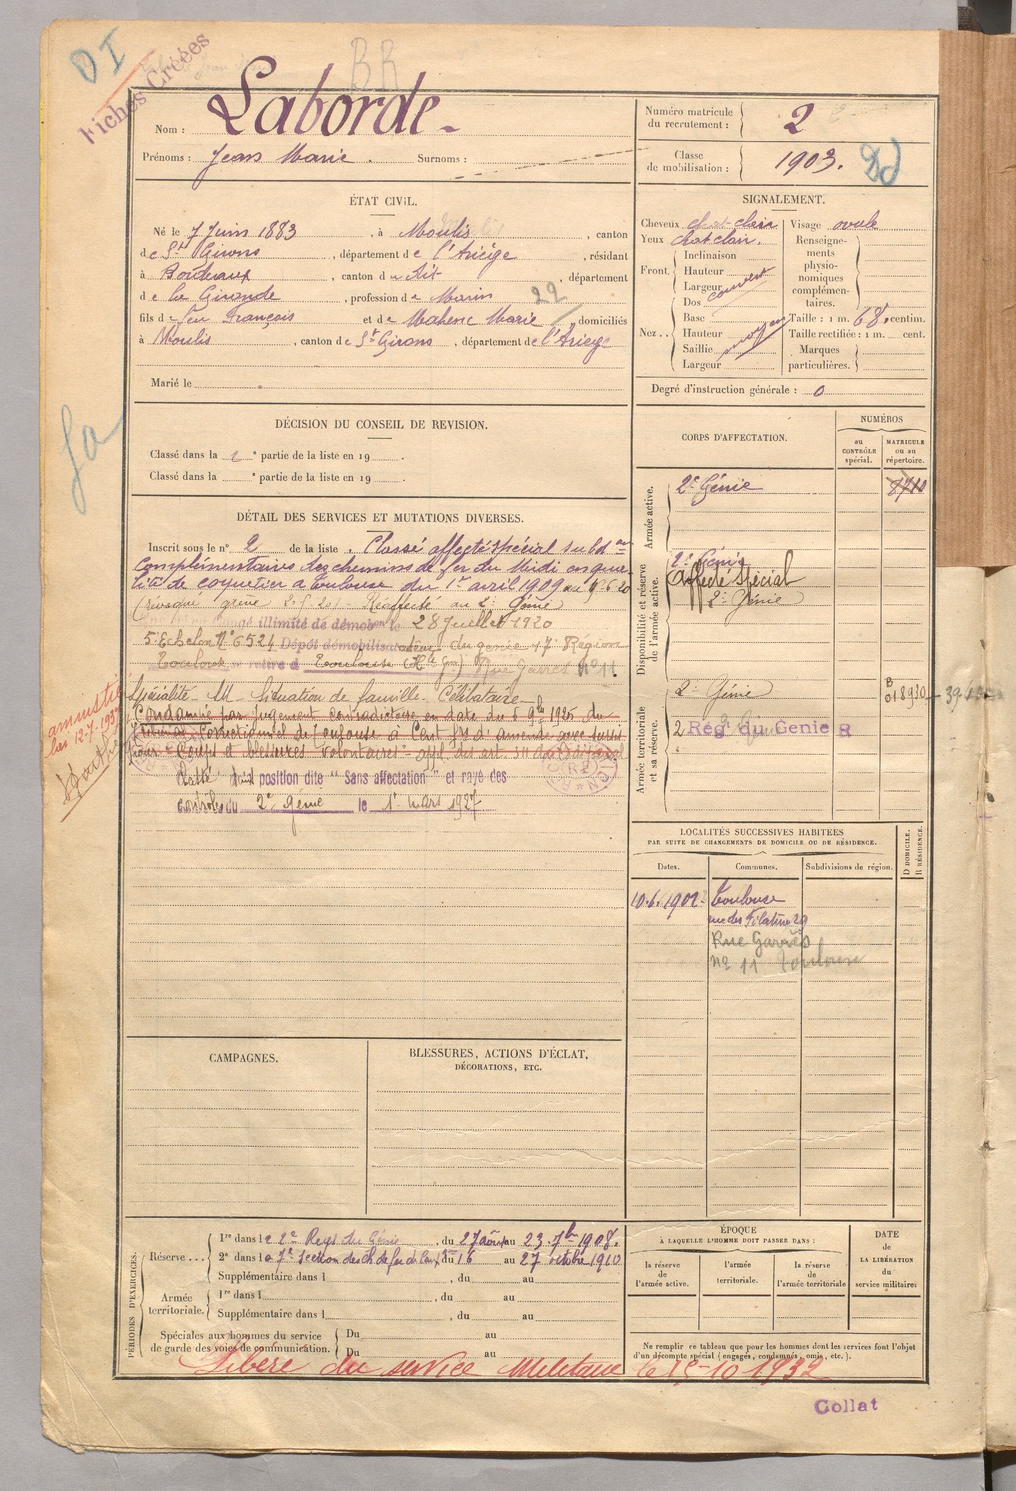 DI
Fiches Créées
BR
Nom : Laborde
Prénoms : Jean Marie . Surnoms :
Numéro matricule du recrutement : 2
Classe de mobilisation : 1903.
ÉTAT CIVIL.
Né le 7 Juin 1883 , à Moulis , canton
de St Girons , département de l'Ariège , résidant
à Bordeaux , canton du dit , département
de la Gironde , profession de Marin
22
fils de feu François et de Mahene Marie domiciliés
à Moulis , canton de St Girons , département de l'Ariège
Marié le
SIGNALEMENT.
Cheveux chat-clair Visage ovale
Yeux chat clair. Renseignements physionomiques complémentaires.
Front. Inclinaison
Hauteur
Largeur
Dos couvert
Nez.. Base Taille : 1 m. 68 centim.
Hauteur moyen Taille rectifiée : 1 m. cent.
Saillie Marques particulières.
Largeur
Degré d'instruction générale : 0
DÉCISION DU CONSEIL DE REVISION.
Classé dans la e partie de la liste en 19 .
Classé dans la e partie de la liste en 19 .
CORPS D'AFFECTATION.
NUMÉROS
au CONTRÔLE spécial.
MATRICULE ou au répertoire.
Armée active.
2e Génie
8710
Disponibilité et réserve de l'armée active.
2e Génie
Affecté Spécial
2e Génie
Armée territoriale et sa réserve.
2e Génie
2 Rég. du Genie R
DÉTAIL DES SERVICES ET MUTATIONS DIVERSES.
Inscrit sous le n° 2 de la liste . Classé affecté spécial subdons
complémentaires des chemins de fer du Midi en qua
lité de coquetier à Toulouse du 1er avril 1909 au
Réaffecté au 2e Génie
illimité de démobon le 28 Juillet 1920
5e Echelon N° 6524 Dépôt démobilisateur du genie 17e Région
Toulouse se retire à Toulouse
N° 11
Spécialité M Situation de famille Célibataire
Condamné par jugement contradictoire en date du 6 9bre 1925 du
Tribunal Correctionnel de Toulouse à Cent frs d'amende avec sursis
pour "Coups et blessures volontaires" appl. des art. 311
Classé dans la position dite "Sans affectation" et rayé des
contrôles du 2e génie le 1er mars 1927
amnistié
LOCALITÉS SUCCESSIVES HABITÉES
PAR SUITE DE CHANGEMENTS DE DOMICILE OU DE RÉSIDENCE.
Dates. Communes. Subdivisions de région.
D DOMICILE. R RÉSIDENCE.
Toulouse
rue des Filatiers 29
Rue Garrès
n° 11 Toulouse
CAMPAGNES.
BLESSURES, ACTIONS D'ÉCLAT, DÉCORATIONS, ETC.
PÉRIODES D'EXERCICES.
Réserve... 1re dans le 2e Regt du Génie , du 27 août au 23. 7b 1908.
2e dans la 7e Section des ch de fer de Camp du 16 au 27 octobre 1910
Supplémentaire dans l , du au
Armée territoriale. 1re dans l , du au
Supplémentaire dans l , du au
Spéciales aux hommes du service de garde des voies de communication. Du au
Du au
ÉPOQUE
À LAQUELLE L'HOMME DOIT PASSER DANS :
la réserve de l'armée active.
l'armée territoriale.
la réserve de l'armée territoriale
DATE de LA LIBÉRATION du service militaire.
Ne remplir ce tableau que pour les hommes dont les services font l'objet
d'un décompte spécial (engagés, condamnés, omis, etc.).
Libéré du service Militaire le 15-10-1932
Collat